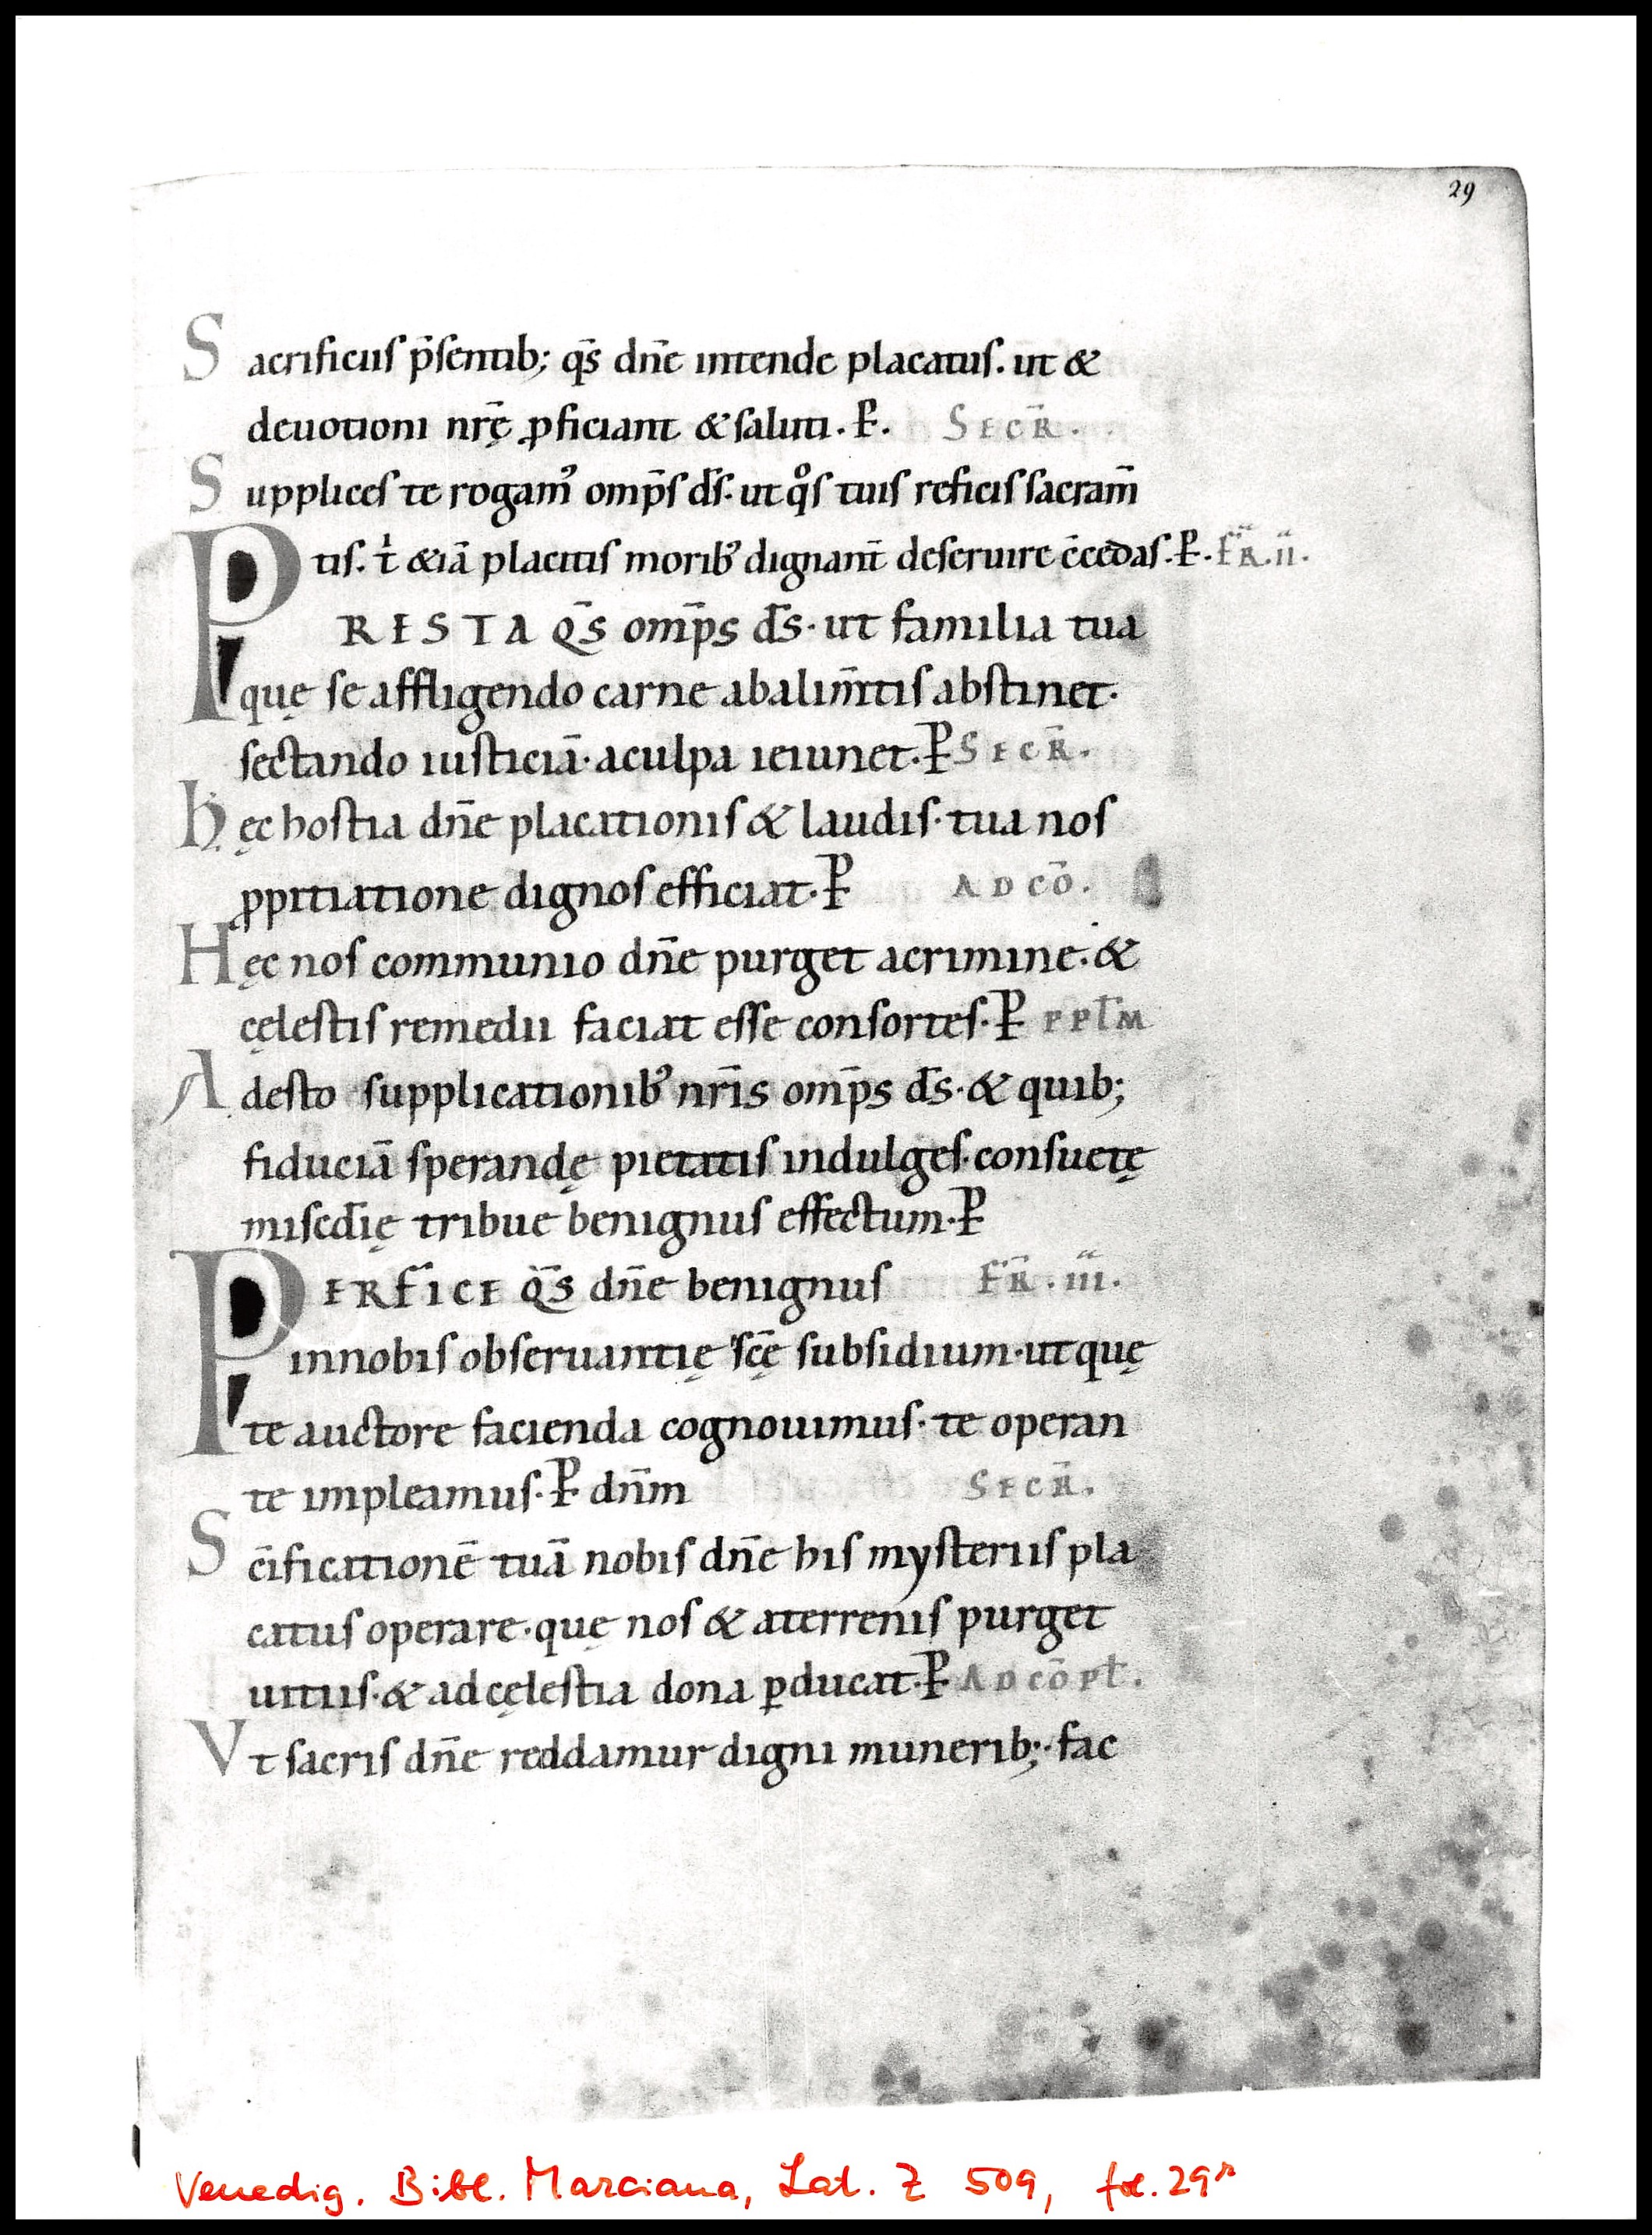 29
Sacrificiis p̄sentib; qs̄ dn̄e intende placatus. ut &
deuotioni nr̄ę ꝓficiant & saluti. P̄. SECR̄.
Supplices te rogam᷒ omp̄s ds̄. ut qo̊s tuis reficis sacram̄
tis. t̍ &iā placitis morib᷒ dignant̄ deseruire c̄cedas. P̄. FR̄. II.
PRESTA QS̄ omp̄s ds̄. ut familia tua
quę se affligendo carne abalim̄tis abstinet.
sectando iusticiā. aculpa ieiunet. P̄ SECR̄.
hęc hostia dn̄e placationis & laudis. tua nos
ꝓpitiatione dignos efficiat. P̄ AD CŌ.
Hęc nos communio dn̄e purget acrimine. &
cęlestis remedii faciat esse consortes. P̄ PPL̄M
Adesto supplicationib᷒ nr̄is omp̄s ds̄. & quib;
fiduciā sperandę pietatis indulges. consuetę
misc̄dię tribue benignus effectum. P̄
PERFICE QS̄ dn̄e benignus FR̄. III.
innobis obseruantię sc̄ę subsidium. ut quę
te auctore facienda cognouimus. te operan
te impleamus. P̄ dn̄m SECR̄.
Sc̄ificationē tuā nobis dn̄e his mysteriis pla
catus operare. quę nos & aterrenis purget
uitiis. & ad cęlestia dona ꝑducat. P̄ AD CŌPL̄.
Vt sacris dn̄e reddamur digni munerib;. fac
Venedig. Bibl. Marciana, Lat. Z 509, fol. 29r